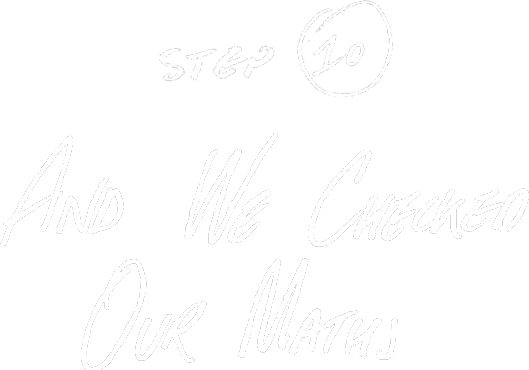 STEP 10
AND WE CHECKED
OUR MATHS